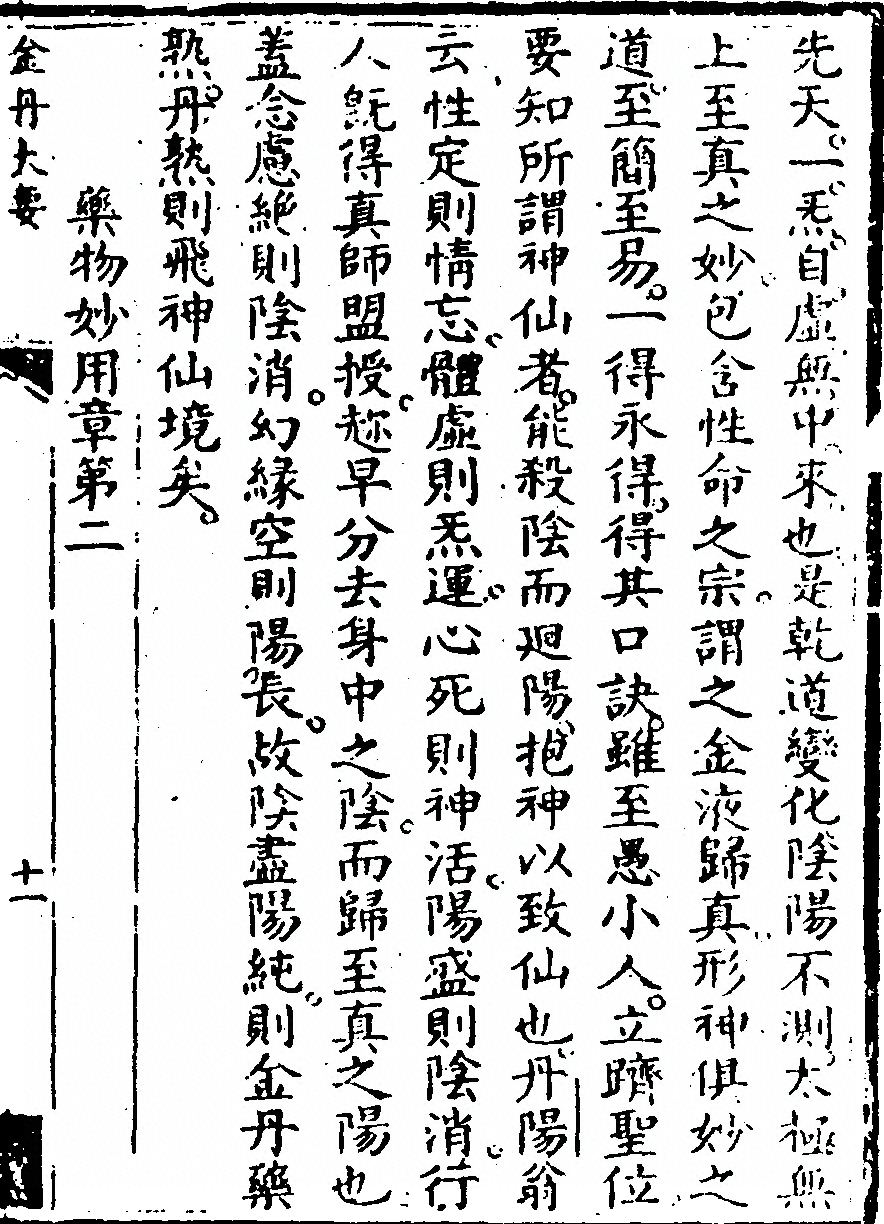 先天。一炁。自虛無中來也是乾道變化陰陽不測太極無
上至真之妙。包含性命之宗。謂之金液歸真形神俱妙之
道。至簡至易。一得永得。得其口訣。雖至愚小人。立躋聖位
要知所謂神仙者。能殺陰而廻陽。抱神以致仙也。丹陽翁
云性定則情忘。體虛則炁運。心死則神活。陽盛則陰消。行
人旣得真師盟授。趂早分去身中之陰。而歸至真之陽也
蓋念慮絶則陰消。幻緣空則陽長。故陰盡陽純。則金丹藥
熟。丹熟則飛神仙境矣。
藥物妙用章第二
金丹大要
十一